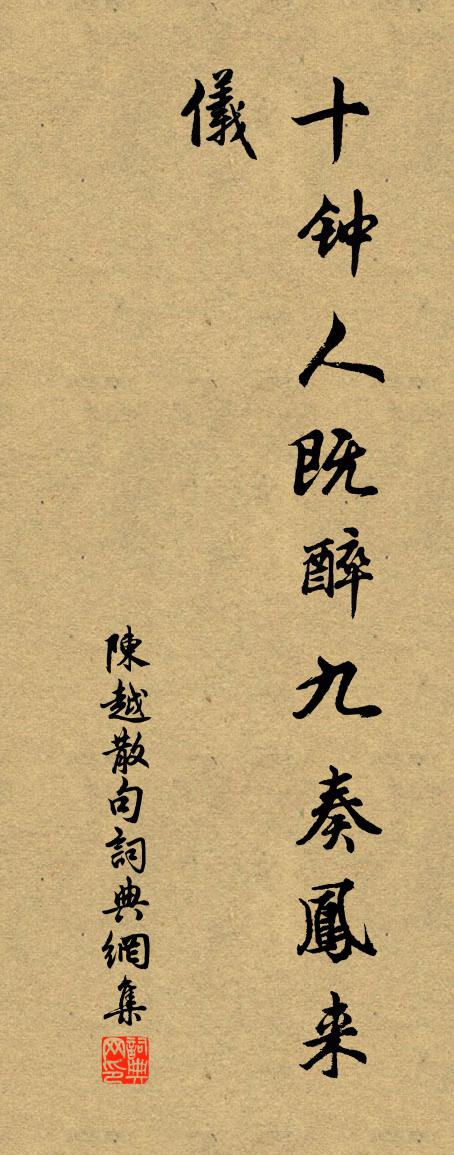 十钟人既醉九奏鳳来
儀
陳越散句詞典網集
詞典网印